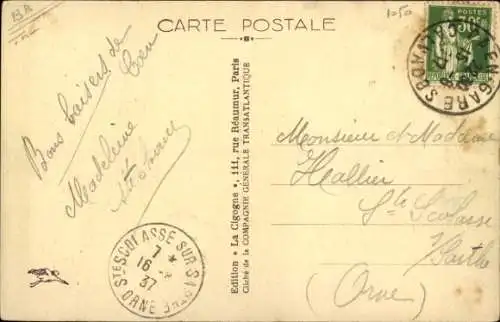 BA
1050
CARTE POSTALE
POSTES
GARE
Bons baisers de
Caen
Madeleine
Edition « La Cigogne », 111, rue Réaumur, Paris
Cliché de la COMPAGNIE GÉNÉRALE TRANSATLANTIQUE
Monsieur et Madame
Hallier
Ste Scolasse
s/Sarthe
(Orne)
STE SCOLASSE SUR SARTHE
7 *
16 - 8
37
ORNE